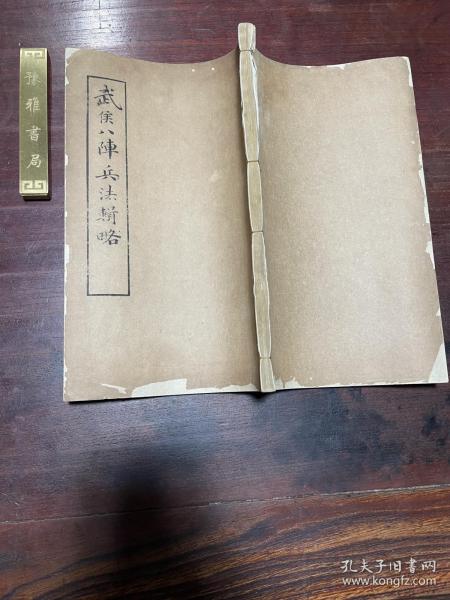 豫雅書局
武侯八陣兵法輯略
孔夫子旧书网
www.kongfz.com